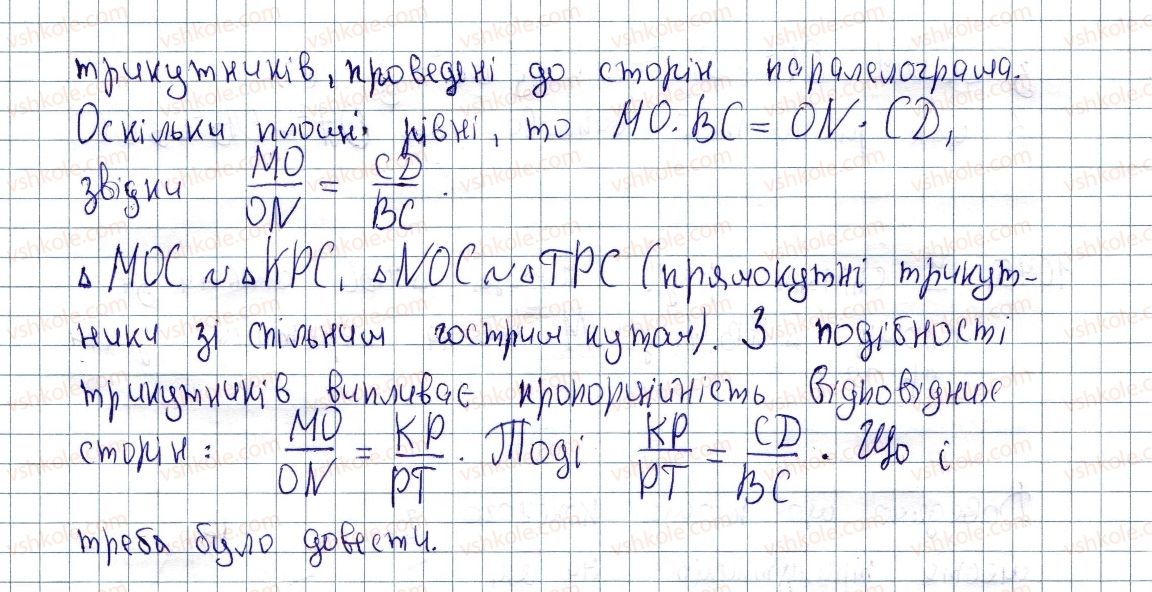 трикутників, проведені до сторін паралелограма.
Оскільки площі рівні, то MO · BC = ON · CD,
звідки MO/ON = CD/BC.
△MOC ~ △KPC, △NOC ~ △TPC (прямокутні трикут-
ники зі спільним гострим кутом). З подібності
трикутників випливає пропорційність відповідних
сторін: MO/ON = KP/PT. Тоді KP/PT = CD/BC. Що і
треба було довести.